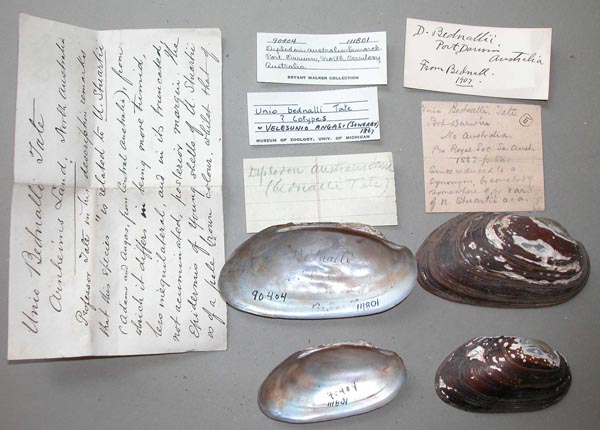 Unio Bednalli Tate
Arnheims Land, North Australia
Professor Tate in his description remarks
that this species is related to U. Stuartii
(Adams and Angas, from Central Australia) from
which it differs in being more tumid,
less inequilateral, and in its truncated,
not acuminated, posterior margin. The
Epidermis of young shells of U. Stuartii
is of a pale brown colour whilst that of
90404 111801
Diplodon australis Lamarck
Port Darwin, North Territory
Australia
BRYANT WALKER COLLECTION
Unio bednalli Tate
? Cotypes
VELESUNIO ANGASI (SOWERBY) 1867
MUSEUM OF ZOOLOGY, UNIV. OF MICHIGAN
Diplodon australis
(bednalli Tate)
D. Bednallii
Port Darwin
Australia
From Bednall.
1907.
Unio Bednalli, Tate
Port Darwin
No. Australia.
Pro Royal Soc. So. Aust.
1882
Since reduced to a
synonym by
of U. Stuartii
5
90404
111801
90404
111801